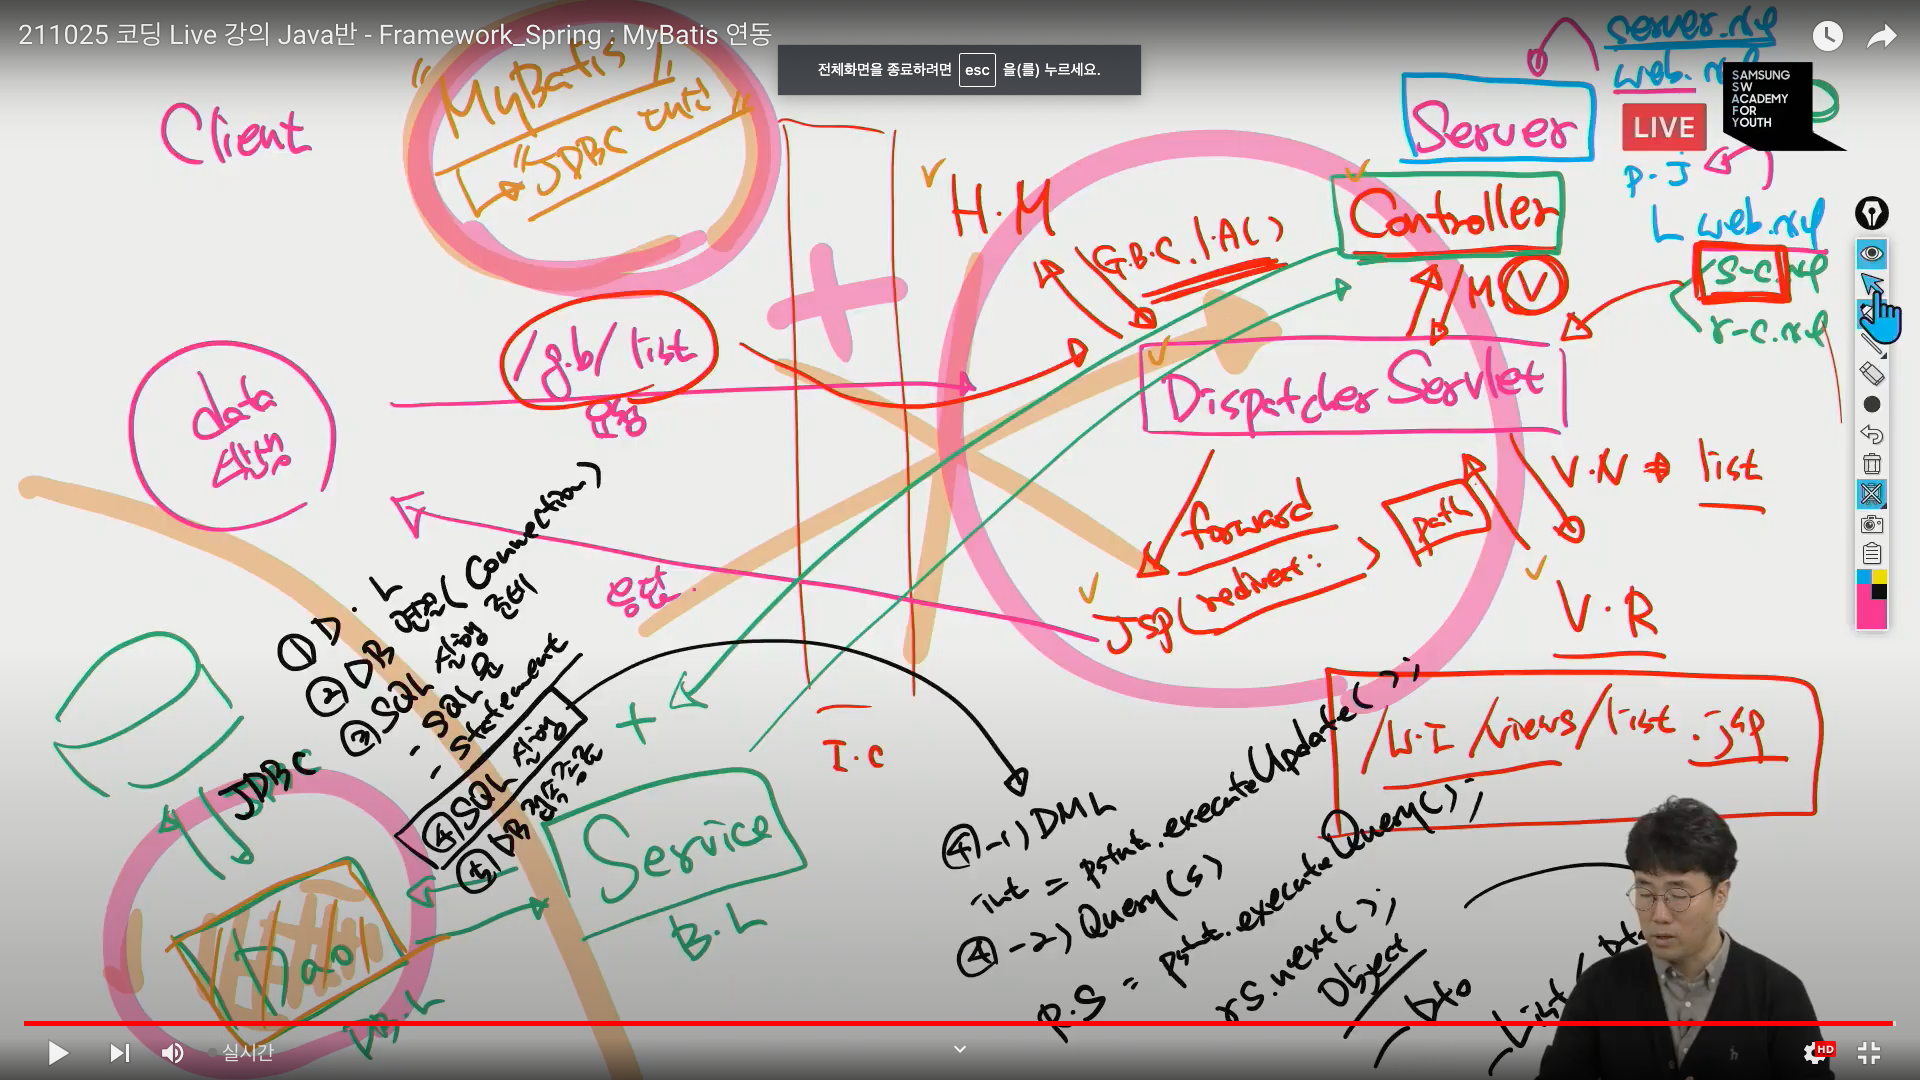 211025 코딩 Live 강의 Java반 - Framework_Spring : MyBatis 연동
전체화면을 종료하려면 esc 을(를) 누르세요.
SAMSUNG
SW
ACADEMY
FOR
YOUTH
LIVE
Client
"MyBatis
"JDBC
Server
server.xml
web.xml
p.j
L web.xml
s-c.xml
r-c.xml
H.M
G.B.C.l.A()
Controller
M V
/g.b/list
요청
data
Dispatcher Servlet
V.N → list
forward
path
Jsp(redirect: )
응답
V.R
/W-I/views/list.jsp
① D.L
② DB 연결(Connection)
③ SQL 실행 준비
· SQL문
· Statement
④ SQL 실행
⑤ DB
JDBC
I.C
Service
B.L
Dao
DB.L
④-1) DML
int = pstmt.executeUpdate();
④-2) Query(s)
R.S = pstmt.executeQuery();
rs.next();
Object
Dto
List
실시간
HD